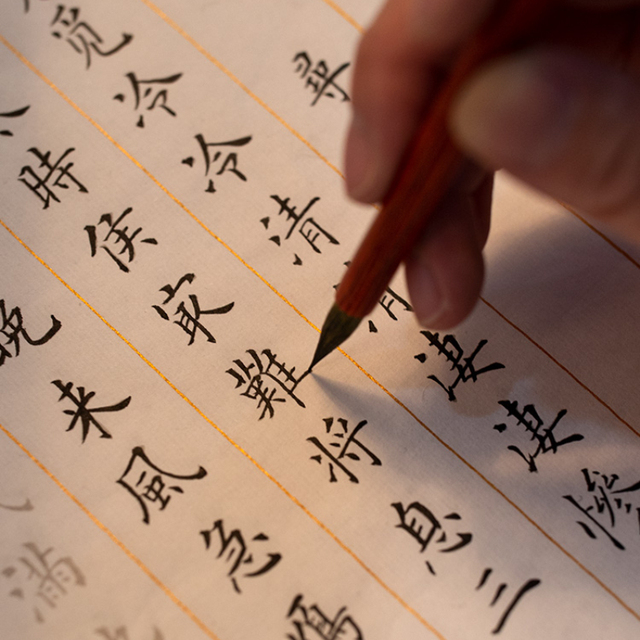 覓冷冷清清凄凄慘
時候最難將息三
晚來風急
滿